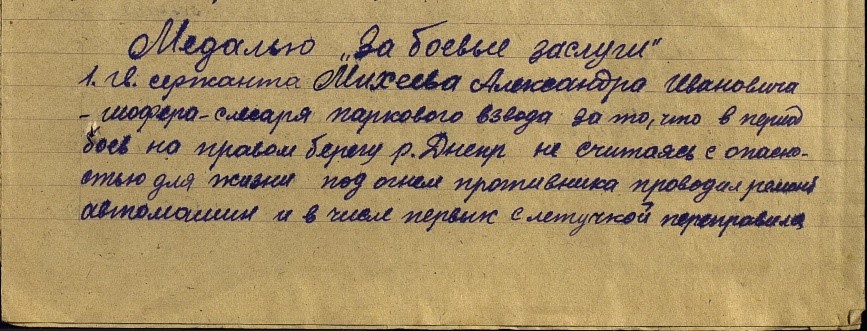 Медалью „За боевые заслуги"
1. гв. сержанта Михеева Александра Ивановича
- шофера-слесаря паркового взвода за то, что в период
боев на правом берегу р. Днепр не считаясь с опасно-
стью для жизни под огнем противника проводил ремонт
автомашин и в числе первых с летучкой переправился